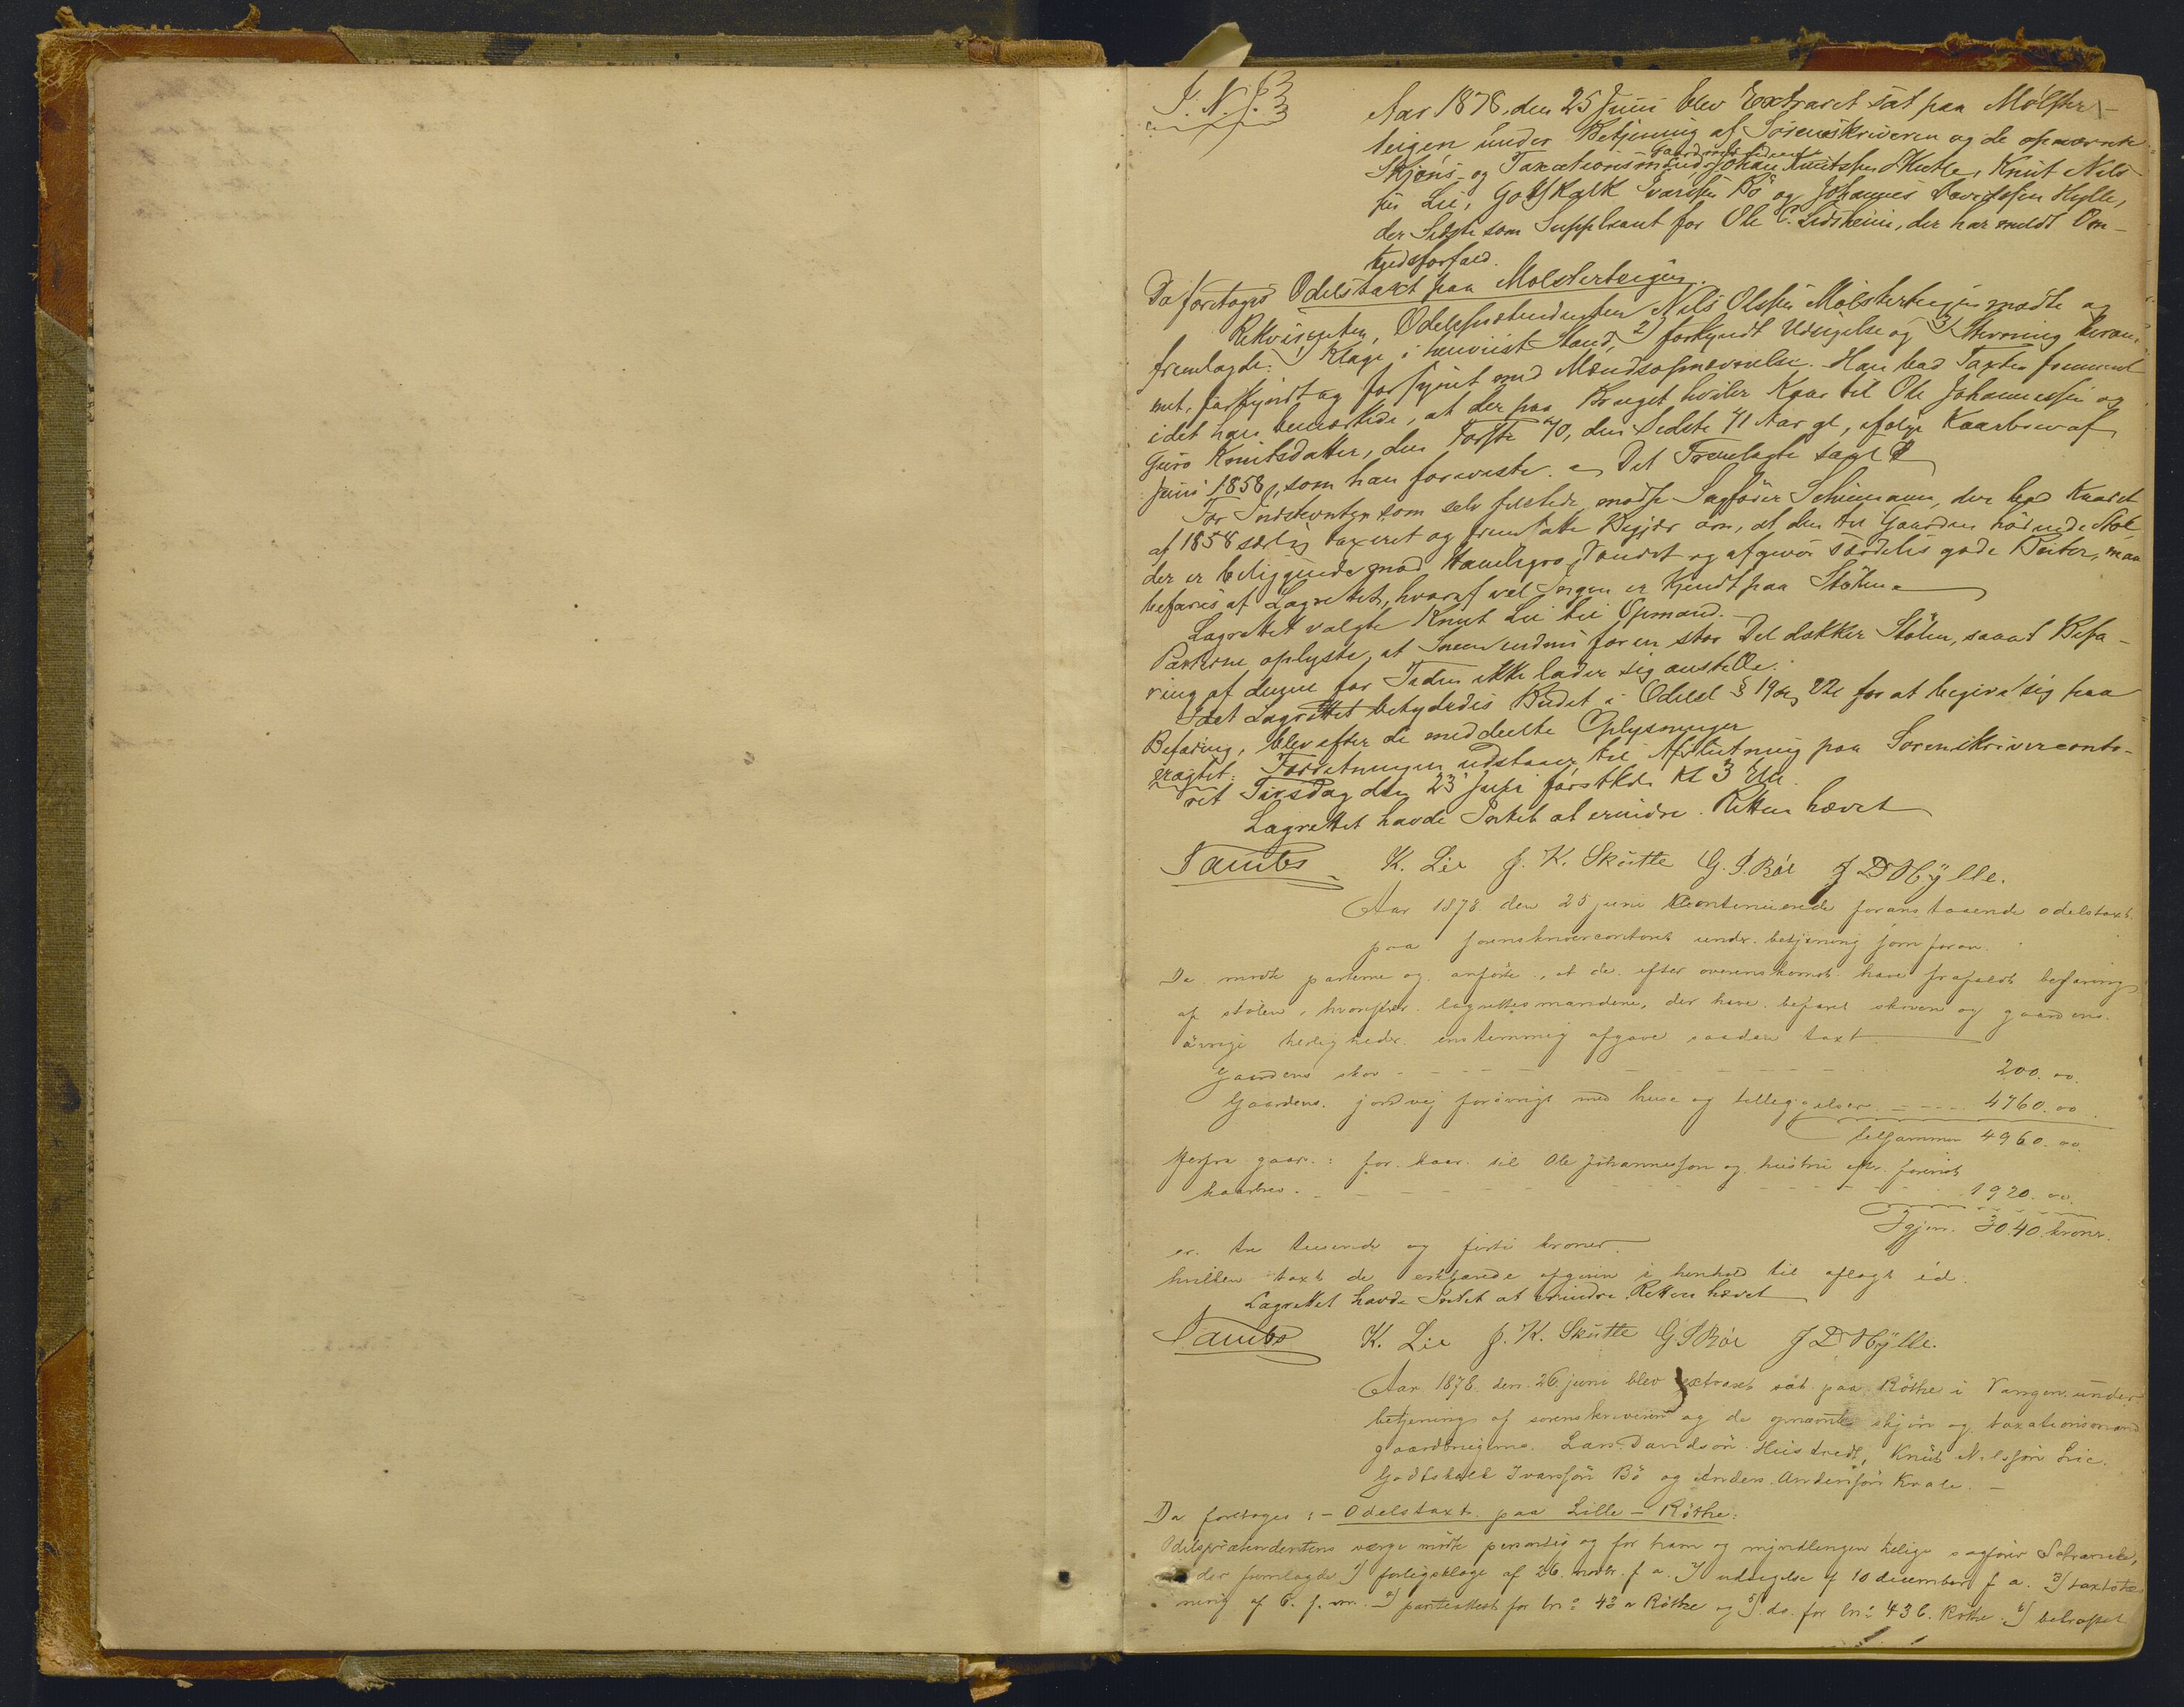 I. N. J.
Aar 1878, den 25 Juni blev Extraret sat paa Mølster-
teigen under Betjening af Sorenskriveren og de opnævnte
Skjøns- og Taxationsmænd: Gaardmændene Johan Knutssen Skutle, Knut Nils-
sen Lie, Gotskalk Ivarssen Bø og Johannes Davidssen Hylle,
der Sidste som Suppleant for Ole C. Lidsheim, der har meldt Om-
byesforfald.
Da foretoges Odelstaxt paa Mølsterteigen.
Rekvirenten, Odelsprætendenten Nils Olssen Mølsterteigen mødte og
fremlagde: 1) Klage i henviist Stand, 2) forkyndt Udsigelse og 3) Stevning beram-
met, forkyndt og forsynet med Mændsopnævnelse. Han bad Taxten fremmet
idet han bemærkede, at der paa Bruget hviler Kaar til Ole Johannessen og
Guro Knutsdatter, den Første 70, den Sidste 71 Aar gl, ifølge Kaarbrev af
Juni 1858, som han foreviste. Det Fremlagte
For Indstevnten som selv tilstede mødte Sagfører Schiemann, der bad Kaaret
af 1858 særlig taxeret og fremsatte Begjær om, at den til Gaarden hørende Støl,
der er beliggende mod Hamlegrø Vandet og afgiver særdeles gode Beiter, maa
befares af Lagrettet, hvoraf vel Ingen er kjendt paa Stølen.
Lagrettet valgte Knut Lie til Opmand.
Parterne oplyste, at Sneen endnu for en stor Del dækker Stølen, saa at Befa-
ring af denne for Tiden ikke lader sig anstille.
Idet Lagrettet betydedes Budet i Odelsl § 19 og 22 for at begive sig paa
Befaring, blev efter de meddeelte Oplysninger
eragtet: Forretningen udstaaer til Afslutning paa Sorenskriverconto-
ret Tirsdag den 23 Juli førstk. Kl 3 Em.
Lagrettet havde Intet at erindre. Retten hævet
Tambs K. Lie J. K. Skutle G. I. Bøe J D Hylle.
Aar 1878 den 25 juni continuerede foranstaaende odelstaxt
paa sorenskrivercontoret under betjening som foran.
Da mødte parterne og anførte, at de efter overenskomst have frafaldt befaring
af stølen, hvorefter lagrettesmændene, der have befaret skoven og gaardens
øvrige herligheder enstemmig afgave saadan taxt
Gaardens skov 200.00.
Gaardens jordvej forøvrigt med huse og tilleggelser 4760.00
tilsammen 4960.00.
Herfra gaar: for kaar til Ole Johannesson og hustru efter forevist
kaarbrev 1920.00.
Igjen 3040 kroner.
er tre tusende og firti kroner.
hvilken taxt de erklærede afgiven i henhold til aflagt ed.
Lagrettet havde Intet at erindre. Retten hævet
Tambs K. Lie J. K. Skutle G I Bøe J D Hylle.
Aar 1878 den 26 juni blev extraret sat paa Røthe i Vangen under
betjening af sorenskriveren og de opnævnte skjøn og taxationsmænd
gaardbrugerne Lars Davidsøn Hustredt, Knut Nilssøn Lie,
Godtskalk Ivarssøn Bø og Anders Anderssøn Kvale.
Da foretoges: - Odelstaxt paa Lille - Røthe:
Odelsprætendentens værge mødte personlig og for ham og myndlingen tillige sagfører
der fremlagde 1) forligsklage af 26. novbr. f. a. 2) udsigelse af 10 december f. a. 3) taxtstæv
ning af 6. f. m. 4) panteattest for lnr. 43 a Røthe og 5) do. for lnr. 43 b. Røthe. 6) bekræftet